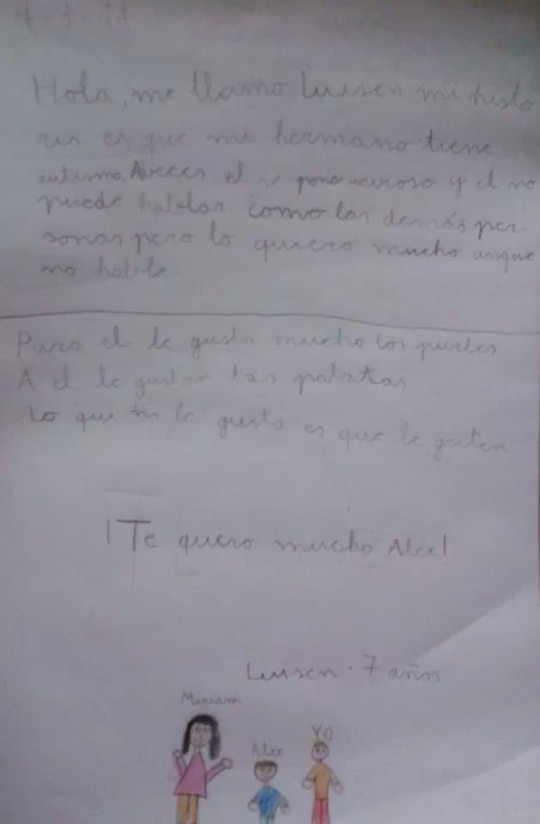 Hola, me llamo Luisen mi histo
ria es que mi hermano tiene
autismo. Aveces el se pone nervioso y el no
puede hablar como las demás per-
sonas pero lo quiero mucho aunque
no hable.
Para el le gusta mucho los puzles
A el le gustan las patatas
Lo que no le gusta es que le griten
¡Te quero mucho Alex!
Luisen - 7 años
Miriam
Alex
YO